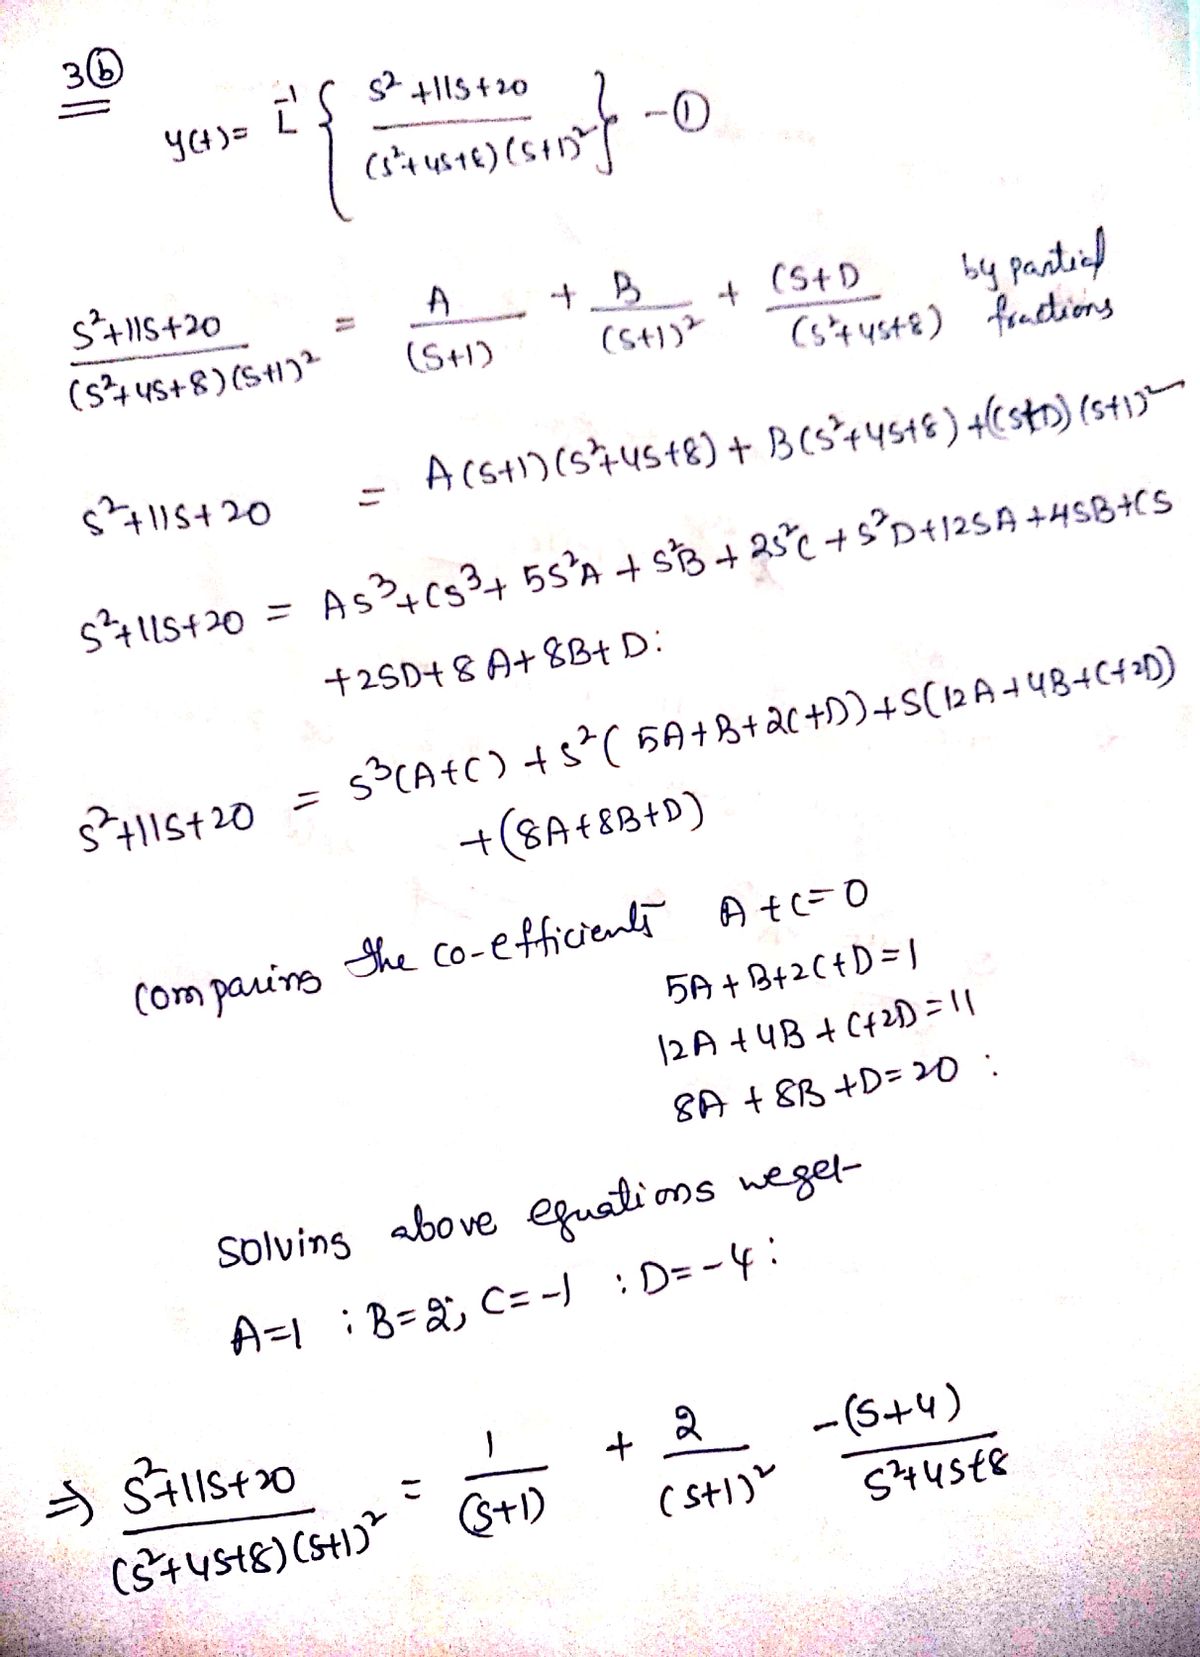 3ⓑ
y(t)= L⁻¹ { (s²+11s+20) / ((s²+4s+8)(s+1)²) } -①
(s²+11s+20) / ((s²+4s+8)(s+1)²) = A/(s+1) + B/(s+1)² + (Cs+D)/(s²+4s+8) by partial fractions
s²+11s+20 = A(s+1)(s²+4s+8) + B(s²+4s+8) + (Cs+D)(s+1)²
s²+11s+20 = As³+Cs³+ 5s²A + s²B + 2s²C + s²D+12sA+4sB+Cs
+2sD+8A+8B+D:
s²+11s+20 = s³(A+C) + s²(5A+B+2C+D))+s(12A+4B+C+2D))
+(8A+8B+D)
comparing the co-efficients A+C=0
5A+B+2C+D=1
12A+4B+C+2D=11
8A+8B+D=20 :
solving above equations weget-
A=1 ; B=2; C=-1 : D=-4:
⇒ (s²+11s+20) / ((s²+4s+8)(s+1)²) = 1/(s+1) + 2/(s+1)² -(s+4)/(s²+4s+8)